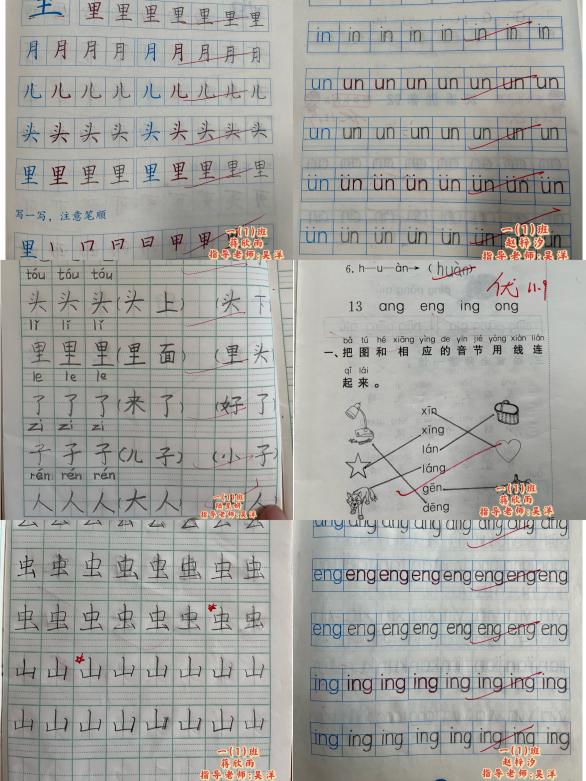 里 里 里 里 里 里 里 里
月 月 月 月 月 月 月 月
儿 儿 儿 儿 儿 儿 儿 儿
头 头 头 头 头 头 头 头
里 里 里 里 里 里 里 里
写一写，注意笔顺
里 丨 口 日 甲 里 里
一(1)班
蒋欣雨
指导老师:吴洋
in in in in in in in in
un un un un un un un un
un un un un un un un un
ün ün ün ün ün ün ün ün
ün ün ün ün ün ün ün ün
一(1)班
赵梓汐
指导老师:吴洋
tóu tóu tóu
头 头 头(头 上) (头 下
lǐ lǐ lǐ
里 里 里(里 面) (里 头
le le le
了 了 了(来 了) (好 了
zi zi zi
子 子 子(儿 子) (小 子
rén rén rén
人 人 人(大 人) 人)
一(1)班
指导老师:吴洋
6. h—u—àn→(huàn)
优 11.9
13 ang eng ing ong
bǎ tú hé xiāng yìng de yīn jié yòng xiàn lián
一、把 图 和 相 应 的 音 节 用 线 连
qǐ lái
起 来。
xīn
xīng
lán
láng
gēn
dēng
一(1)班
蒋欣雨
指导老师:吴洋
虫 虫 虫 虫 虫 虫 虫 虫
虫 虫 虫 虫 虫 虫 虫 虫
山 山 山 山 山 山 山 山
山 山 山 山 山 山 山 山
一(1)班
蒋欣雨
指导老师:吴洋
ang ang ang ang ang ang ang ang
eng eng eng eng eng eng eng eng
eng eng eng eng eng eng eng eng
ing ing ing ing ing ing ing ing
ing ing ing ing ing ing ing ing
一(1)班
赵梓汐
指导老师:吴洋